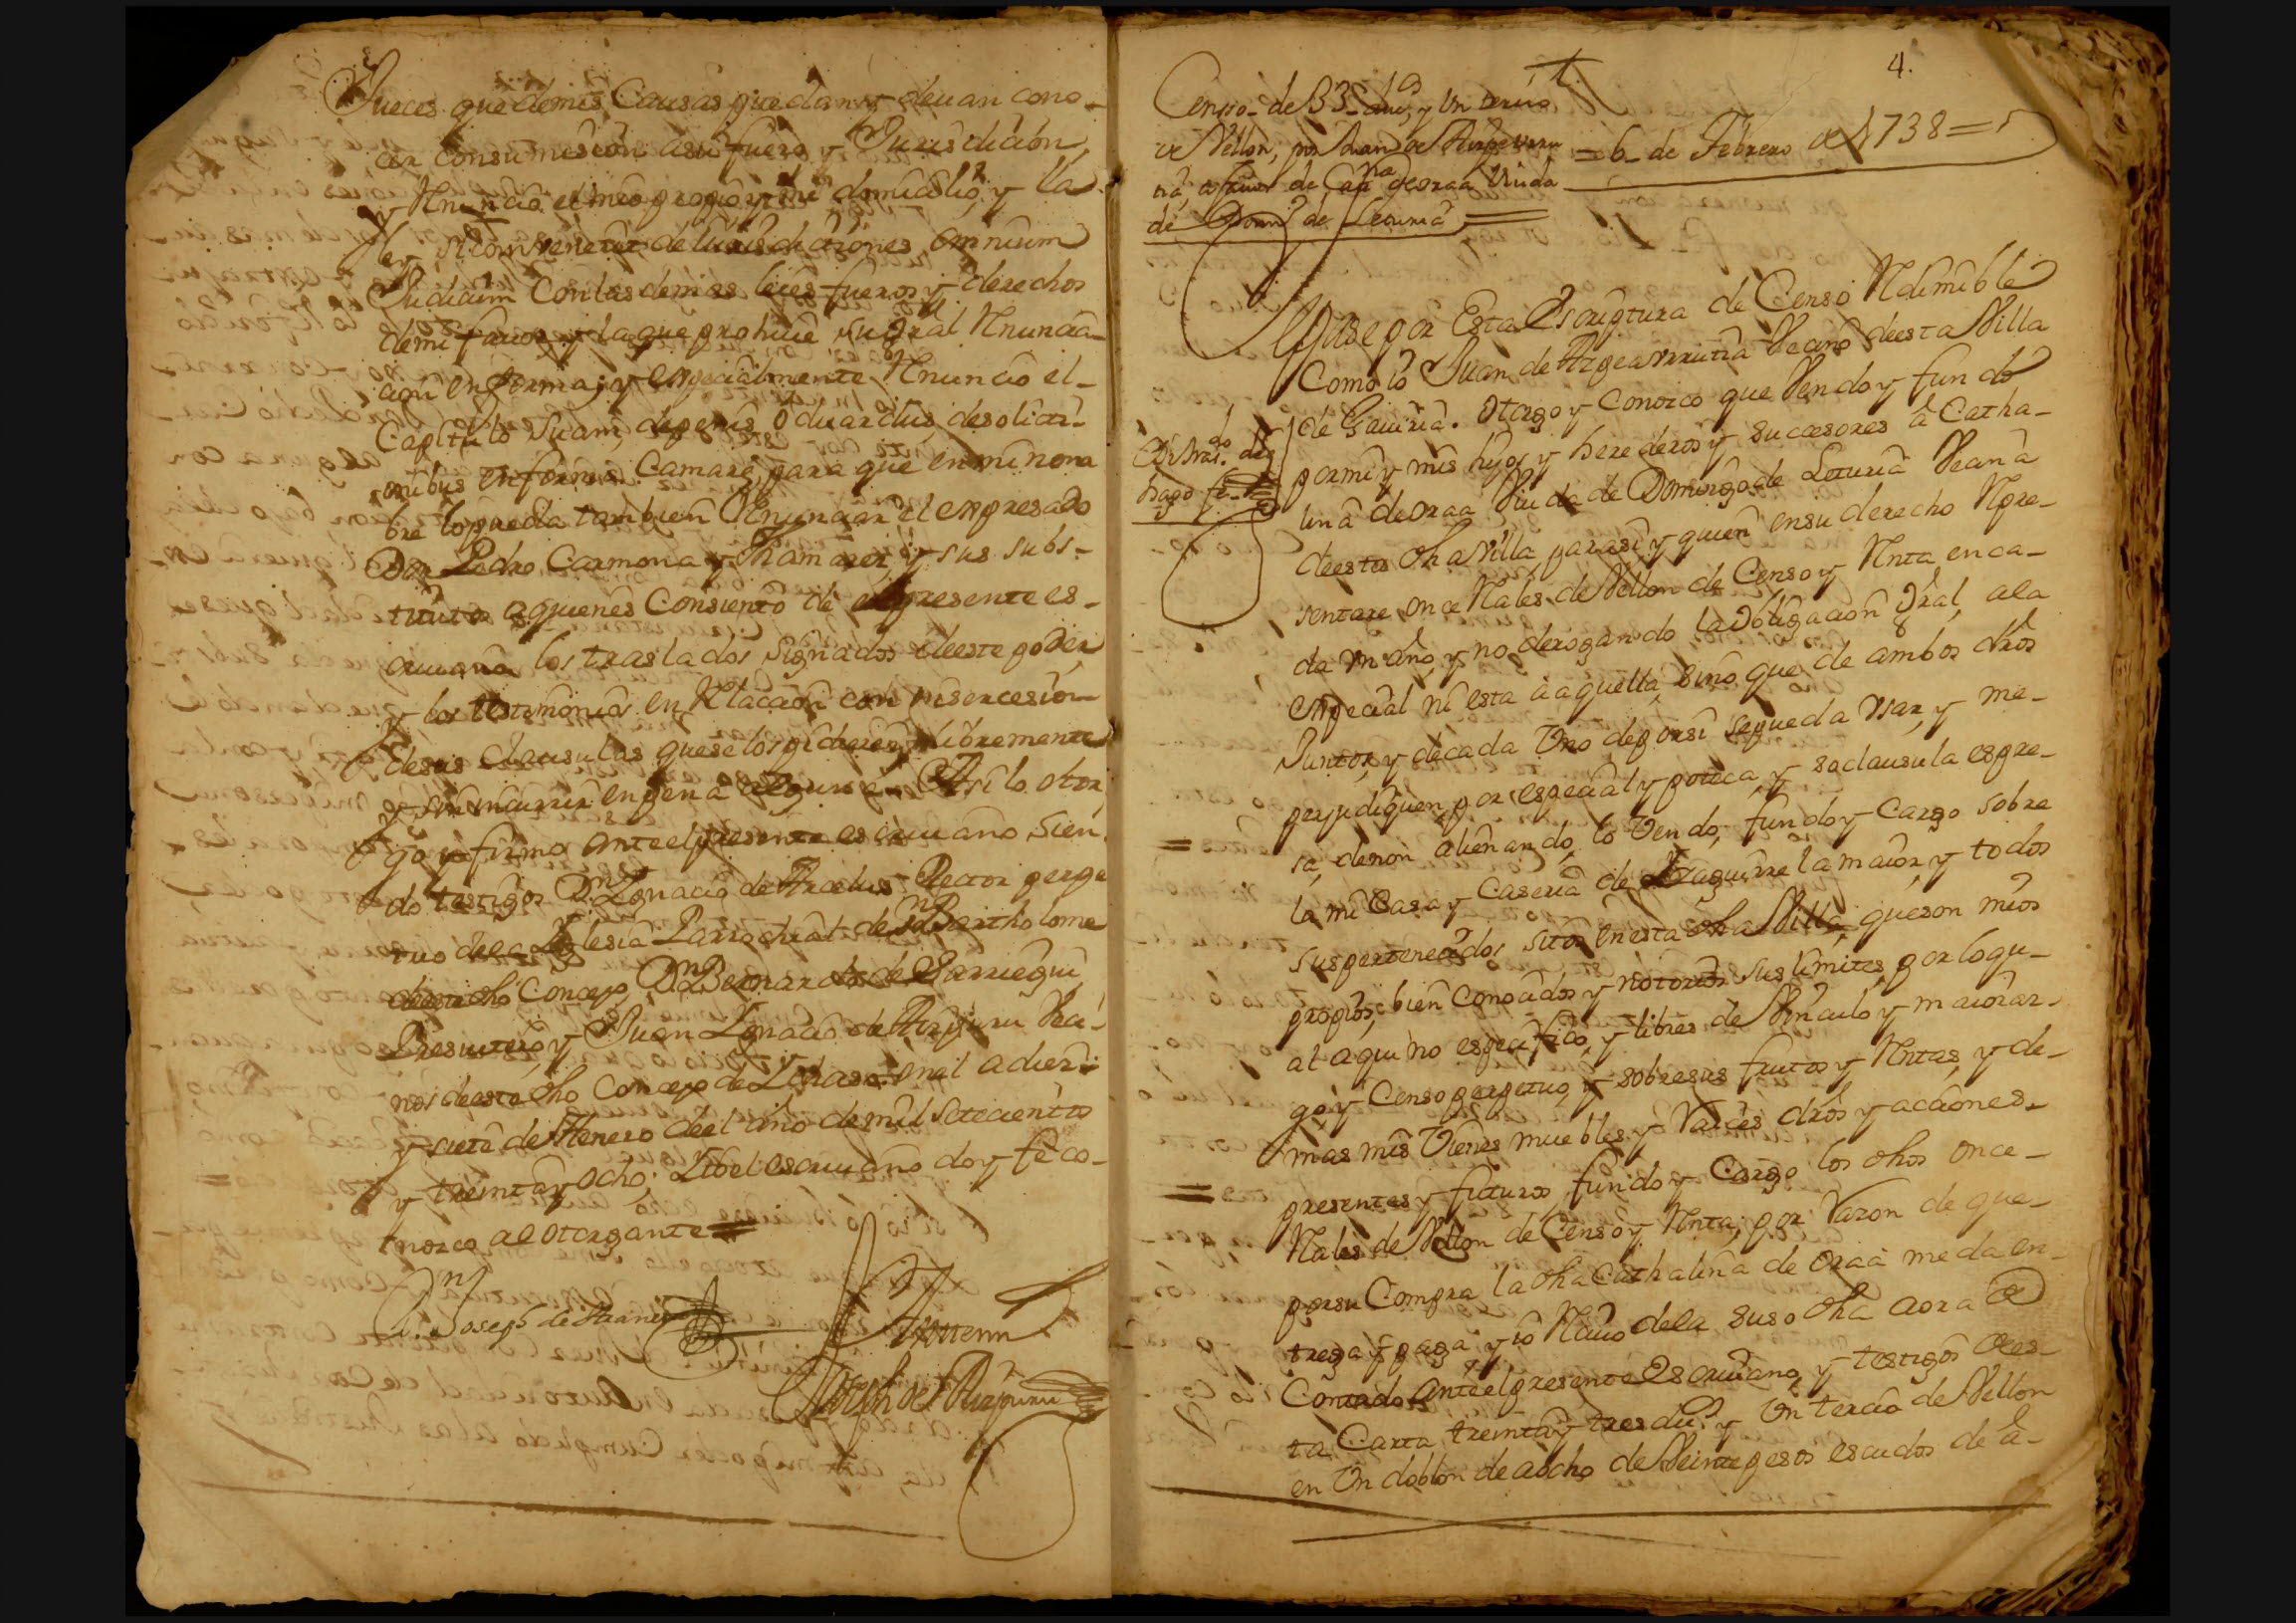 Jueces que demis Causas puedan y devan cono-
cer consumision asu fuero y Jurisdicion
y Rnuncio el mio propio y mi domicilio, y la
ley siconvenerit de Jurisdictiones omnium
Judicum Con las demas leies fueros y derechos
demi favor y la que prohive su gral Rnuncia-
cion en forma; y especialmente Rnuncio el
Capitulo Suam de penis
para que en mi nom
bre lo pueda tambien Renunciar el expresado
Don Pedro Carmona y Thamarez, y sus subs-
titutos aquienes Consiento de el presente es-
crivano los traslados Signados deeste poder
y los testimonios en Rlacion con
desus clausulas quese los pidieren libremente
y sin incurrir en pena alguna. Asi lo otor
go y firmo ante el presente escrivano, Sien
do testigos Dn Ignacio de Rector perpe
tuo dela Iglesia Parrochial de Sn Bartholome
deeste dho Concejo, Dn Bernardo de Barriegui
Presvitero, y Juan Ignacio de Aizpuru Veci-
nos deeste dho Concejo de en el a diez i
y siete de Henero deel año de mil Setecientos
y treinta y ocho; e Io el escrivano doy fe co-
nozco al otorgante =
Dn Joseph de
Antemi
Joseph de Aizpuru
4.
Censso de 33 dus, y Un tercio
de Vellon, por Juan de Aizpeurru
tia, afavor de Cathna deoraa Viuda
de Domo de Leturia =
= 6 de Febrero de 1738 =
Sepase por Esta Escriptura de Censo Rdimible
Como io Juan de Azpeavrrutia Vecino deesta Villa
de Gaviria. Otorgo y Conozco que Vendo y fundo
por mi y mis hijos y herederos y sucesores â Catha-
lina deoraa Viuda de Domingo de Leturia Vecina
deesta dha Villa para si y quien ensu derecho Rpre-
sentare once Rales de Vellon de Censo y Rnta en ca-
da un año, y no derogando la obligacion Gral, ala
especial ni esta a aquella, sino que de ambos dhros
Juntos, y decada Uno depor si sepueda usar, y me-
perjudiquen, por especial ypoteca, y so clausula espre-
sa, denon alienando, lo Vendo, fundo y Cargo sobre
la mi Casa y Caseria de Izaguirre la maior, y todos
sus pertenecidos sitos en esta dha Villa, queson mios
propios, bien Conocidos y notorios sus limites, por loqu-
al aqui no especifico, y libres de Vinculo y maioraz-
go, y Censo perpetuo, y sobre sus frutos y Rntas, y de-
mas mis Vienes muebles, y Raices dros y acciones
presentes y futuros fundo y Cargo los dhos once
Rales de Vellon de Censo y Rnta, por Razon de que
por su Compra la dha Cathalina de oraa me da en-
trega y paga y io Rcivo dela suso dha aora de
Contado ante el presente Escrivano, y testigos dees-
ta Carta treinta y tres dus. y Un tercio de Vellon
en Un doblon de aocho de Veinte pesos escudos de â-
hago fe